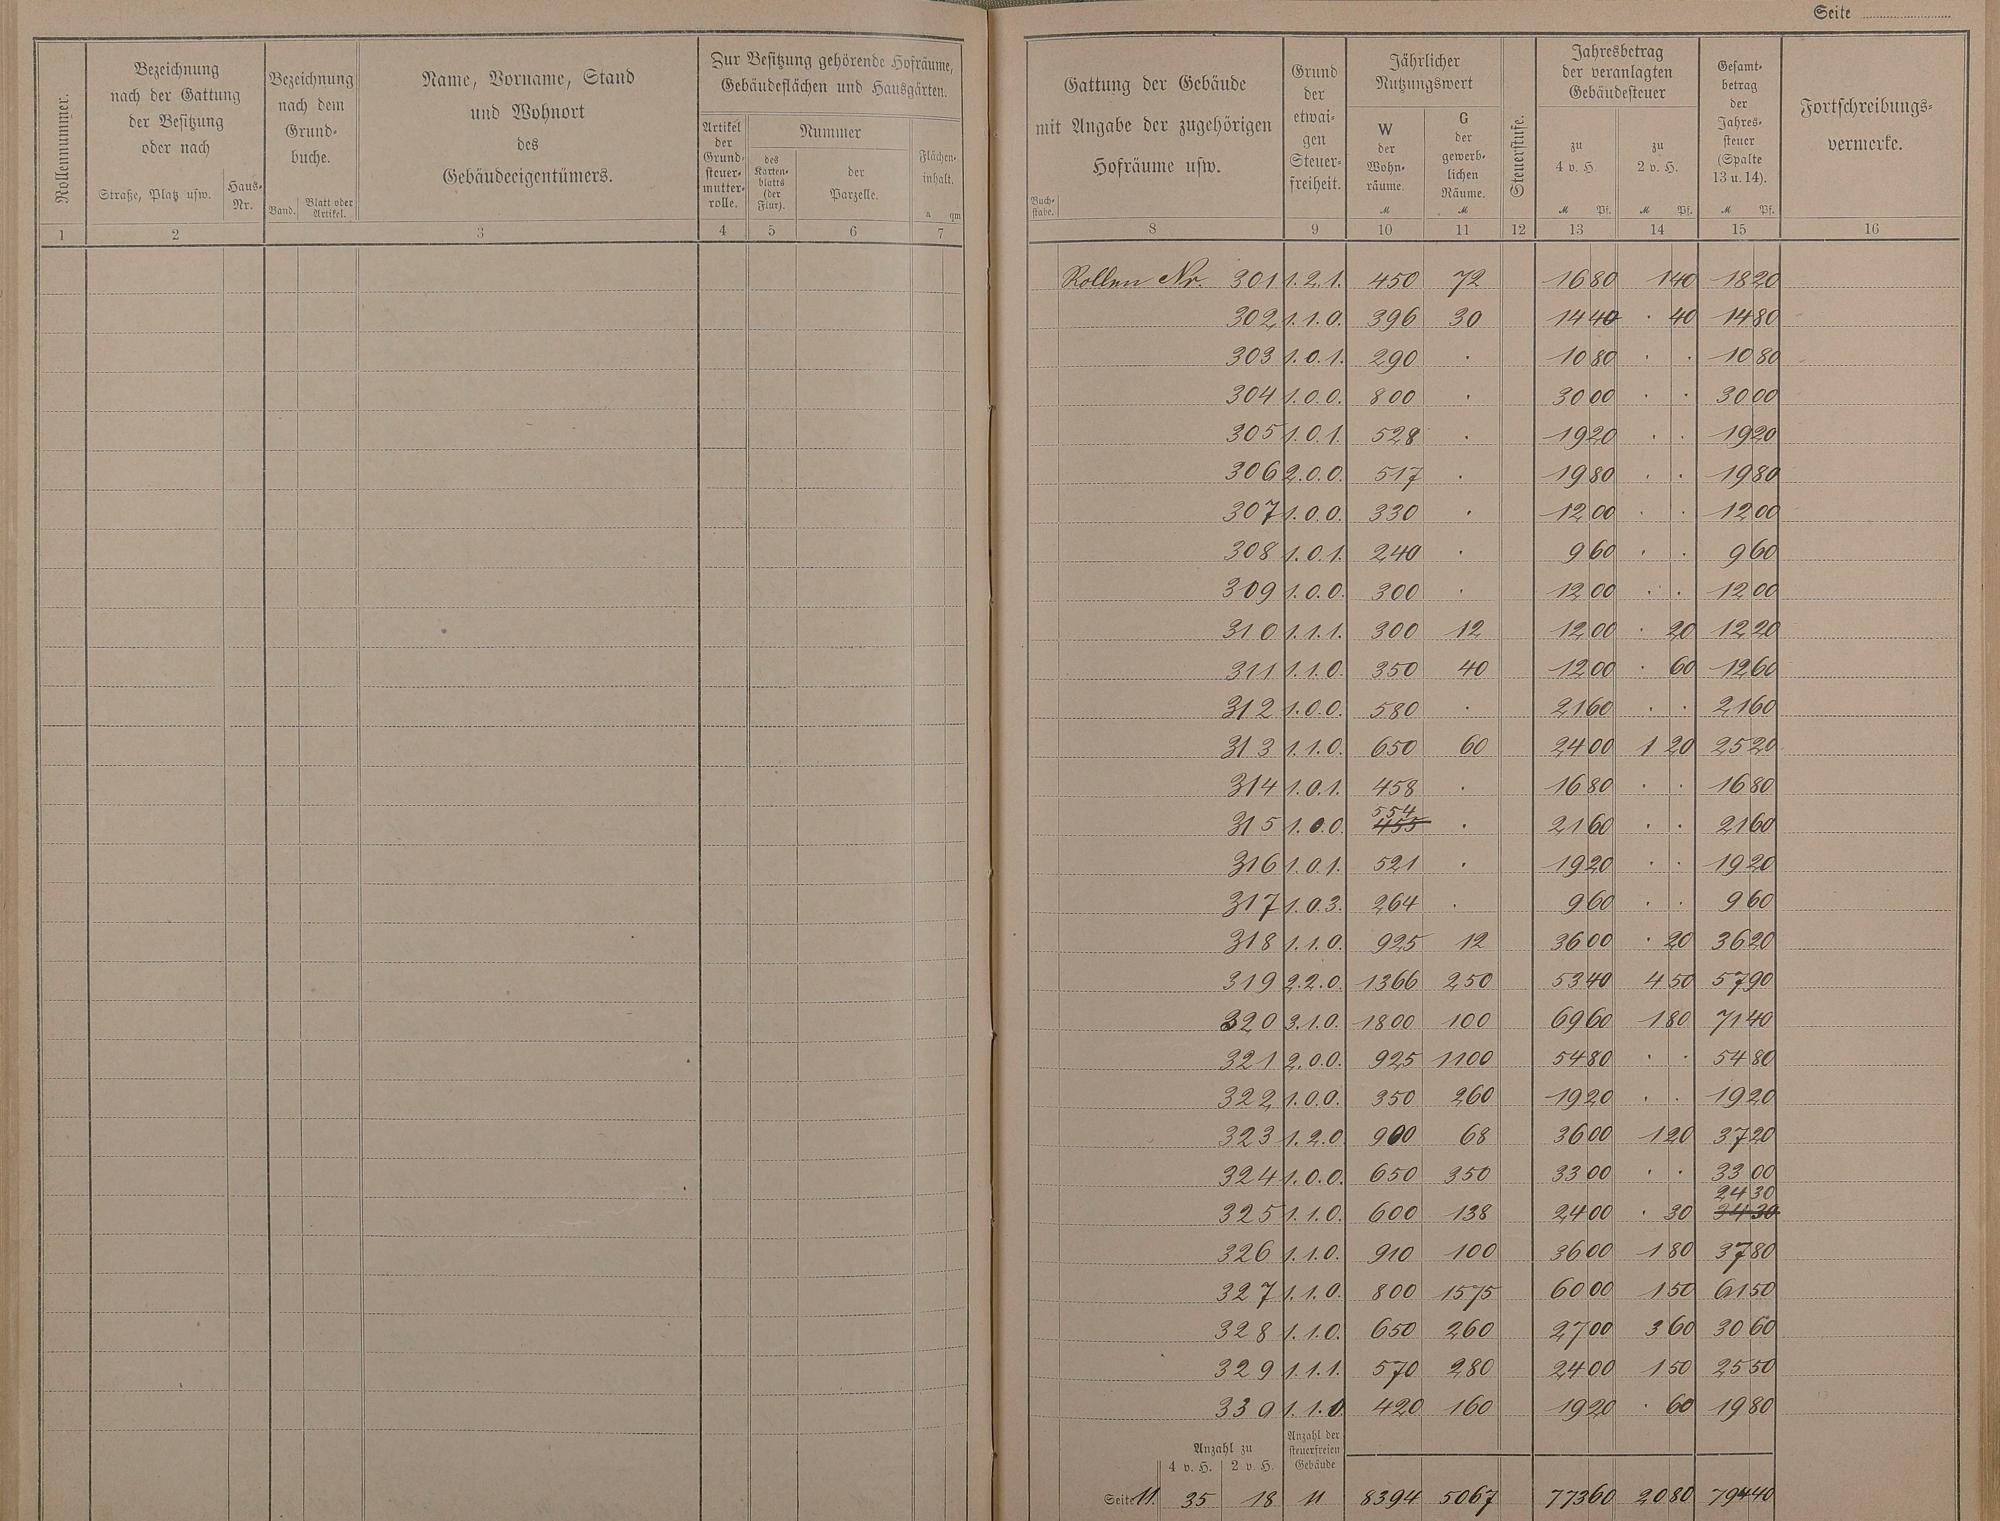 Seite
Rollennummer.
Bezeichnung
nach der Gattung
der Besitzung
oder nach
Straße, Platz usw.
Haus-
Nr.
Bezeichnung
nach dem
Grund-
buche.
Band.
Blatt oder
Artikel.
Name, Vorname, Stand
und Wohnort
des
Gebäudeeigentümers.
Zur Besitzung gehörende Hofräume,
Gebäudeflächen und Hausgärten.
Artikel
der
Grund-
steuer-
mutter-
rolle.
Nummer
des
Karten-
blatts
(der
Flur).
der
Parzelle.
Flächen-
inhalt.
a qm
1 2 3 4 5 6 7
Gattung der Gebäude
mit Angabe der zugehörigen
Hofräume usw.
Buch-
stabe.
Grund
der
etwai-
gen
Steuer-
freiheit.
Jährlicher
Nutzungswert
W
der
Wohn-
räume.
M
G
der
gewerb-
lichen
Räume.
M
Steuerstufe.
Jahresbetrag
der veranlagten
Gebäudesteuer
zu
4 v. H.
M Pf.
zu
2 v. H.
M Pf.
Gesamt-
betrag
der
Jahres-
steuer
(Spalte
13 u. 14).
M Pf.
Fortschreibungs-
vermerke.
8 9 10 11 12 13 14 15 16
Rollen Nr. 301 1.2.1. 450 72 16 80 1 40 18 20
302 1.1.0. 396 30 14 40 . 40 14 80
303 1.0.1. 290 . 10 80 . . 10 80
304 1.0.0. 800 . 30 00 . . 30 00
305 1.0.1. 528 . 19 20 . . 19 20
306 2.0.0. 517 . 19 80 . . 19 80
307 1.0.0. 330 . 12 00 . . 12 00
308 1.0.1. 240 . 9 60 . . 9 60
309 1.0.0. 300 . 12 00 . . 12 00
310 1.1.1. 300 12 12 00 . 20 12 20
311 1.1.0. 350 40 12 00 . 60 12 60
312 1.0.0. 580 . 21 60 . . 21 60
313 1.1.0. 650 60 24 00 1 20 25 20
314 1.0.1. 458 . 16 80 . . 16 80
554
315 1.0.0. 455 . 21 60 . . 21 60
316 1.0.1. 521 . 19 20 . . 19 20
317 1.0.3. 264 . 9 60 . . 9 60
318 1.1.0. 925 12 36 00 . 20 36 20
319 2.2.0. 1366 250 53 40 4 50 57 90
320 3.1.0. 1800 100 69 60 1 80 71 40
321 2.0.0. 925 1100 54 80 . . 54 80
322 1.0.0. 350 260 19 20 . . 19 20
323 1.2.0. 900 68 36 00 1 20 37 20
324 1.0.0. 650 350 33 00 . . 33 00
24 30
325 1.1.0. 600 138 24 00 . 30 34 30
326 1.1.0. 910 100 36 00 1 80 37 80
327 1.1.0. 800 1575 60 00 1 50 61 50
328 1.1.0. 650 260 27 00 3 60 30 60
329 1.1.1. 570 280 24 00 1 50 25 50
339 1.1.0. 420 160 19 20 . 60 19 80
Anzahl zu
4 v. H. 2 v. H.
Anzahl der
steuerfreien
Gebäude
Seite 11. 35 18 11 8394 5067 773 60 20 80 794 40